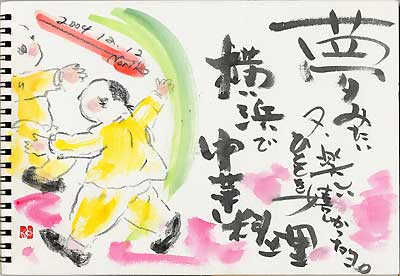 夢みたい
又、楽しい
ひととき
嬉かったヨ。
横浜で
中華料理
2004 12.12
Noriko